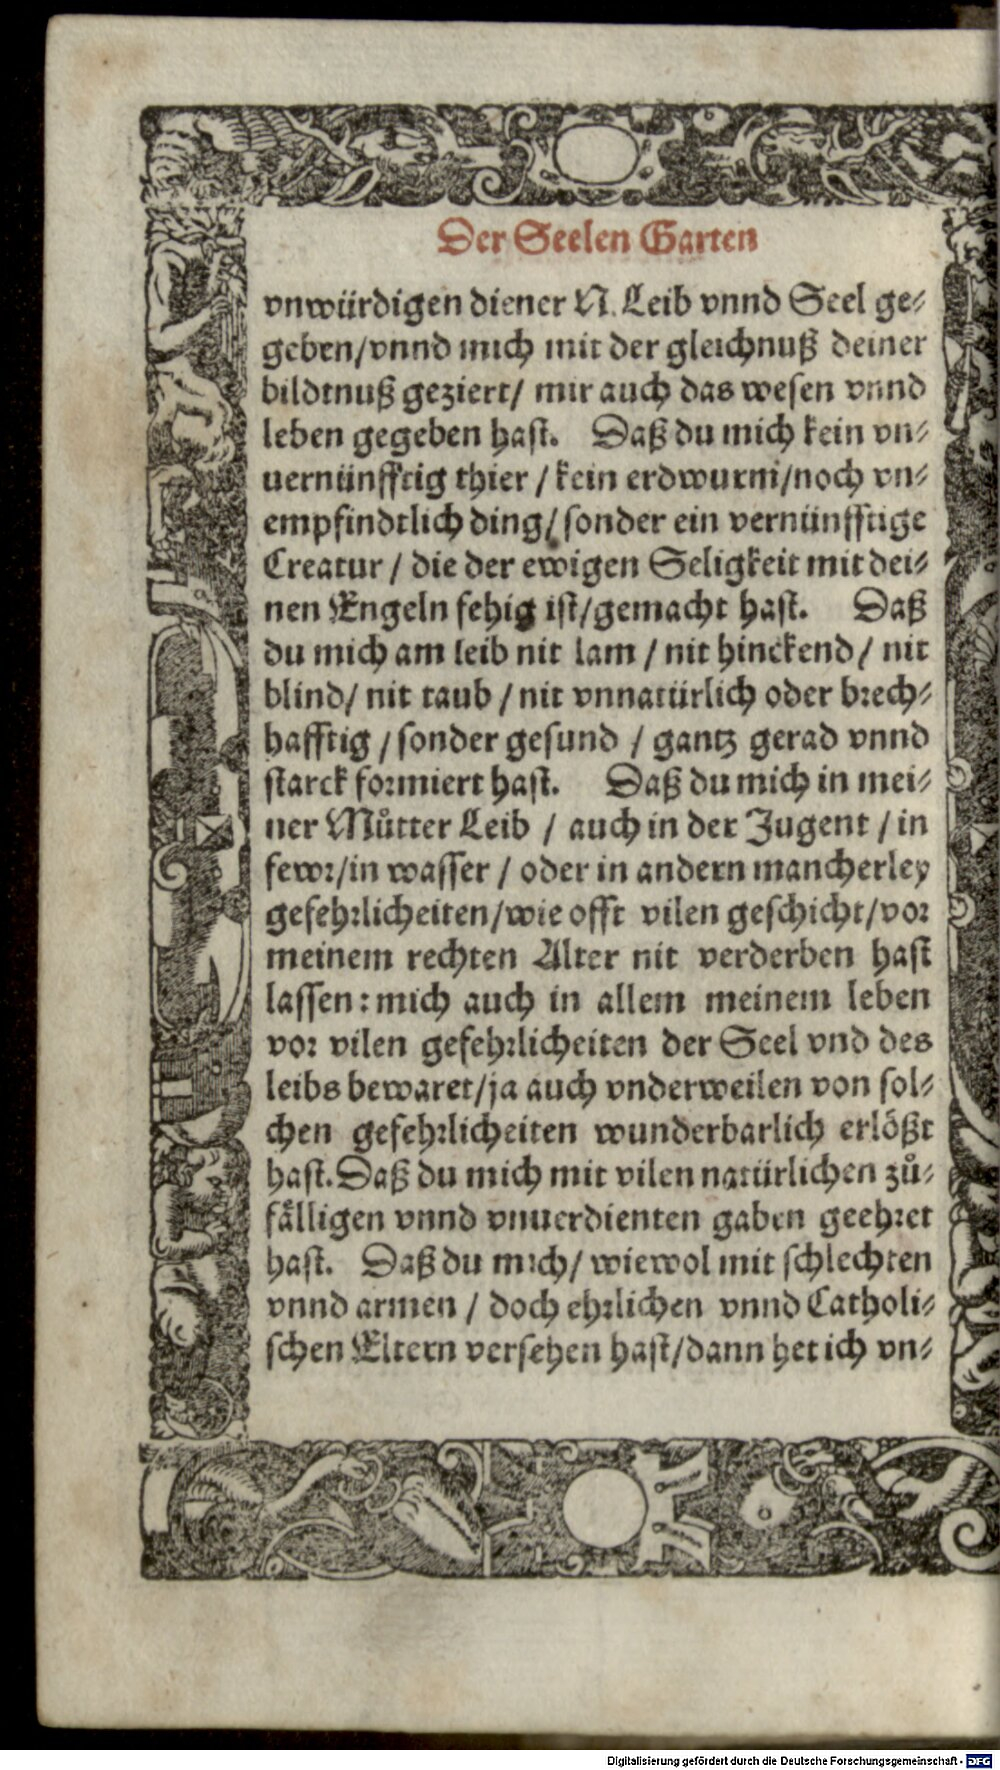 Der Seelen Garten
vnwürdigen diener N. Leib vnnd Seel ge⸗
geben/vnnd mich mit der gleichnuß deiner
bildtnuß geziert/ mir auch das wesen vnnd
leben gegeben hast. Daß du mich kein vn⸗
uernünfftig thier / kein erdwurm/noch vn⸗
empfindtlich ding/ sonder ein vernünfftige
Creatur / die der ewigen Seligkeit mit dei⸗
nen Engeln fehig ist/gemacht hast. Daß
du mich am leib nit lam / nit hinckend / nit
blind/ nit taub / nit vnnatürlich oder brech⸗
hafftig / sonder gesund / gantz gerad vnnd
starck formiert hast. Daß du mich in mei⸗
ner Můtter Leib / auch in der Jugent / in
fewr/in wasser / oder in andern mancherley
gefehrlicheiten/wie offt vilen geschicht/vor
meinem rechten Alter nit verderben hast
lassen: mich auch in allem meinem leben
vor vilen gefehrlicheiten der Seel vnd des
leibs bewaret/ja auch vnderweilen von sol⸗
chen gefehrlicheiten wunderbarlich erlößt
hast. Daß du mich mit vilen natürlichen zů⸗
fälligen vnnd vnuerdienten gaben geehret
hast. Daß du mich/ wiewol mit schlechten
vnnd armen / doch ehrlichen vnnd Catholi⸗
schen Eltern versehen hast/dann het ich vn⸗
Digitalisierung gefördert durch die Deutsche Forschungsgemeinschaft - DFG